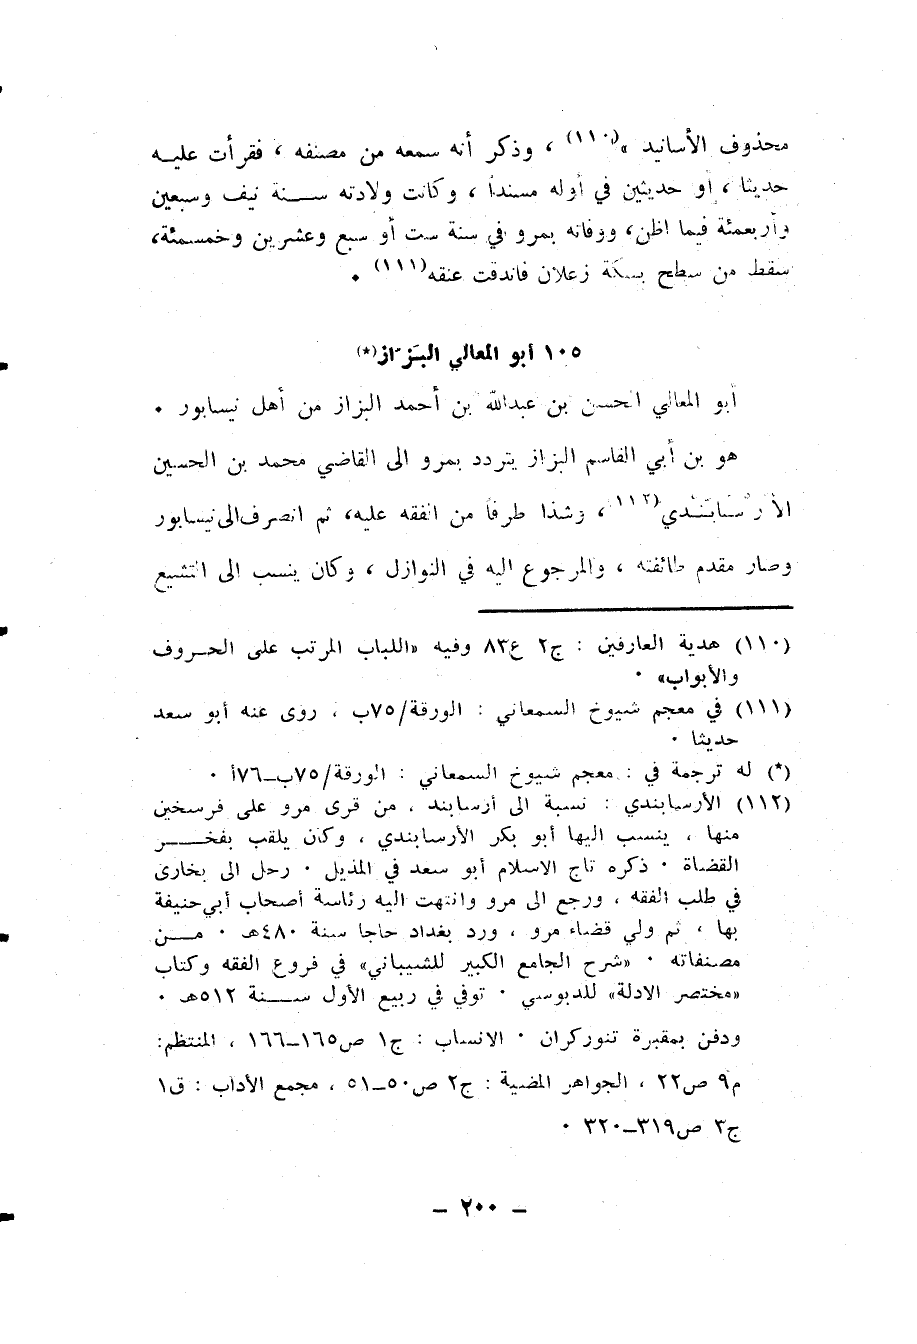 محذوف الأسانيد »(١١٠) ، وذكر أنه سمعه من مصنفه ، فقرأت عليه
حديثا ، أو حديثين في أوله مسنداً ، وكانت ولادته سنة نيف وسبعين
وأربعمئة فيما اظن، ووفاته بمرو في سنة ست أو سبع وعشرين وخمسمئة،
سقط من سطح بسكة زعلان فاندقت عنقه(١١١) .
١٠٥ أبو المعالي البَزّاز(*)
أبو المعالي الحسن بن عبدالله بن أحمد البزاز من أهل نيسابور .
هو بن أبي القاسم البزاز يتردد بمرو الى القاضي محمد بن الحسين
الأرْسَابَنْدي(١١٢) ، وشدا طرفاً من الفقه عليه، ثم انصرف الى نيسابور
وصار مقدم طائفته ، والمرجوع اليه في النوازل ، وكان ينسب الى التشيع
(١١٠) هدية العارفين : ج٢ ع٨٣ وفيه «اللباب المرتب على الحروف
والأبواب» .
(١١١) في معجم شيوخ السمعاني : الورقة/٧٥ب ، روى عنه أبو سعد
حديثا .
(*) له ترجمة في : معجم شيوخ السمعاني : الورقة/٧٥ب–٧٦أ .
(١١٢) الأرسابندي : نسبة الى أرسابند ، من قرى مرو على فرسخين
منها ، ينسب اليها أبو بكر الأرسابندي ، وكان يلقب بفخر
القضاة . ذكره تاج الاسلام أبو سعد في المذيل . رحل الى بخارى
في طلب الفقه ، ورجع الى مرو وانتهت اليه رئاسة أصحاب أبي حنيفة
بها ، ثم ولي قضاء مرو ، ورد بغداد حاجا سنة ٤٨٠هـ . من
مصنفاته . «شرح الجامع الكبير للشيباني» في فروع الفقه وكتاب
«مختصر الادلة» للدبوسي . توفي في ربيع الأول سنة ٥١٢هـ .
ودفن بمقبرة تنوركران . الانساب : ج١ ص١٦٥–١٦٦ ، المنتظم:
م٩ ص٢٢ ، الجواهر المضية : ج٢ ص٥٠–٥١ ، مجمع الأداب : ق١
ج٣ ص٣١٩–٣٢٠ .
– ٢٠٠ –